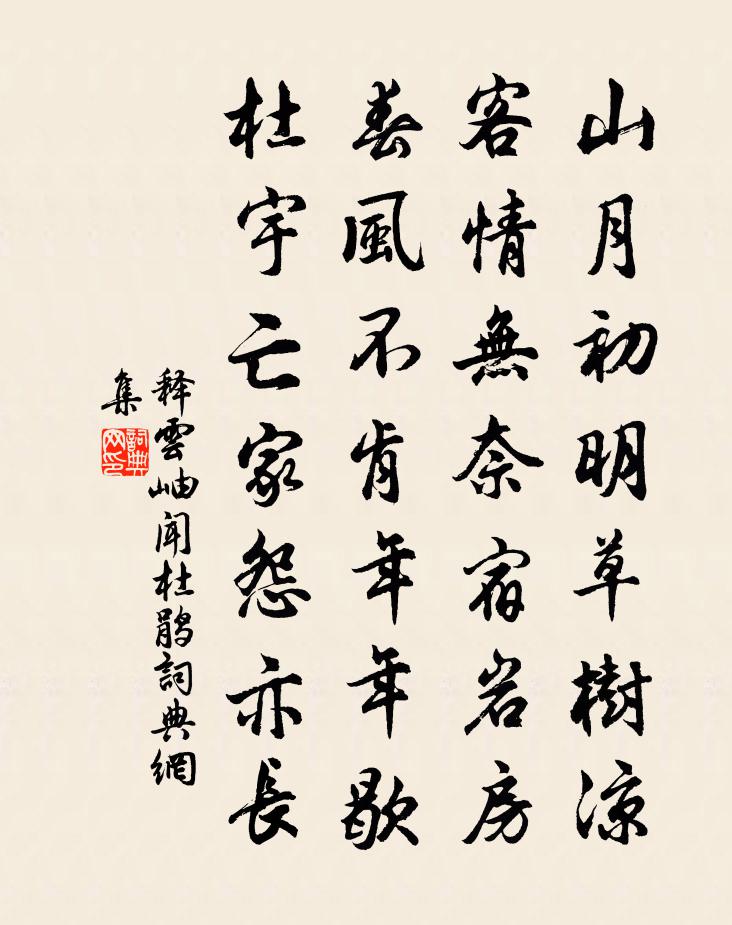 山月初明草樹涼
客情無奈宿岩房
春風不肯年年歇
杜宇亡家怨亦長
释雲岫闻杜鹃詞典網
集
詞典网印